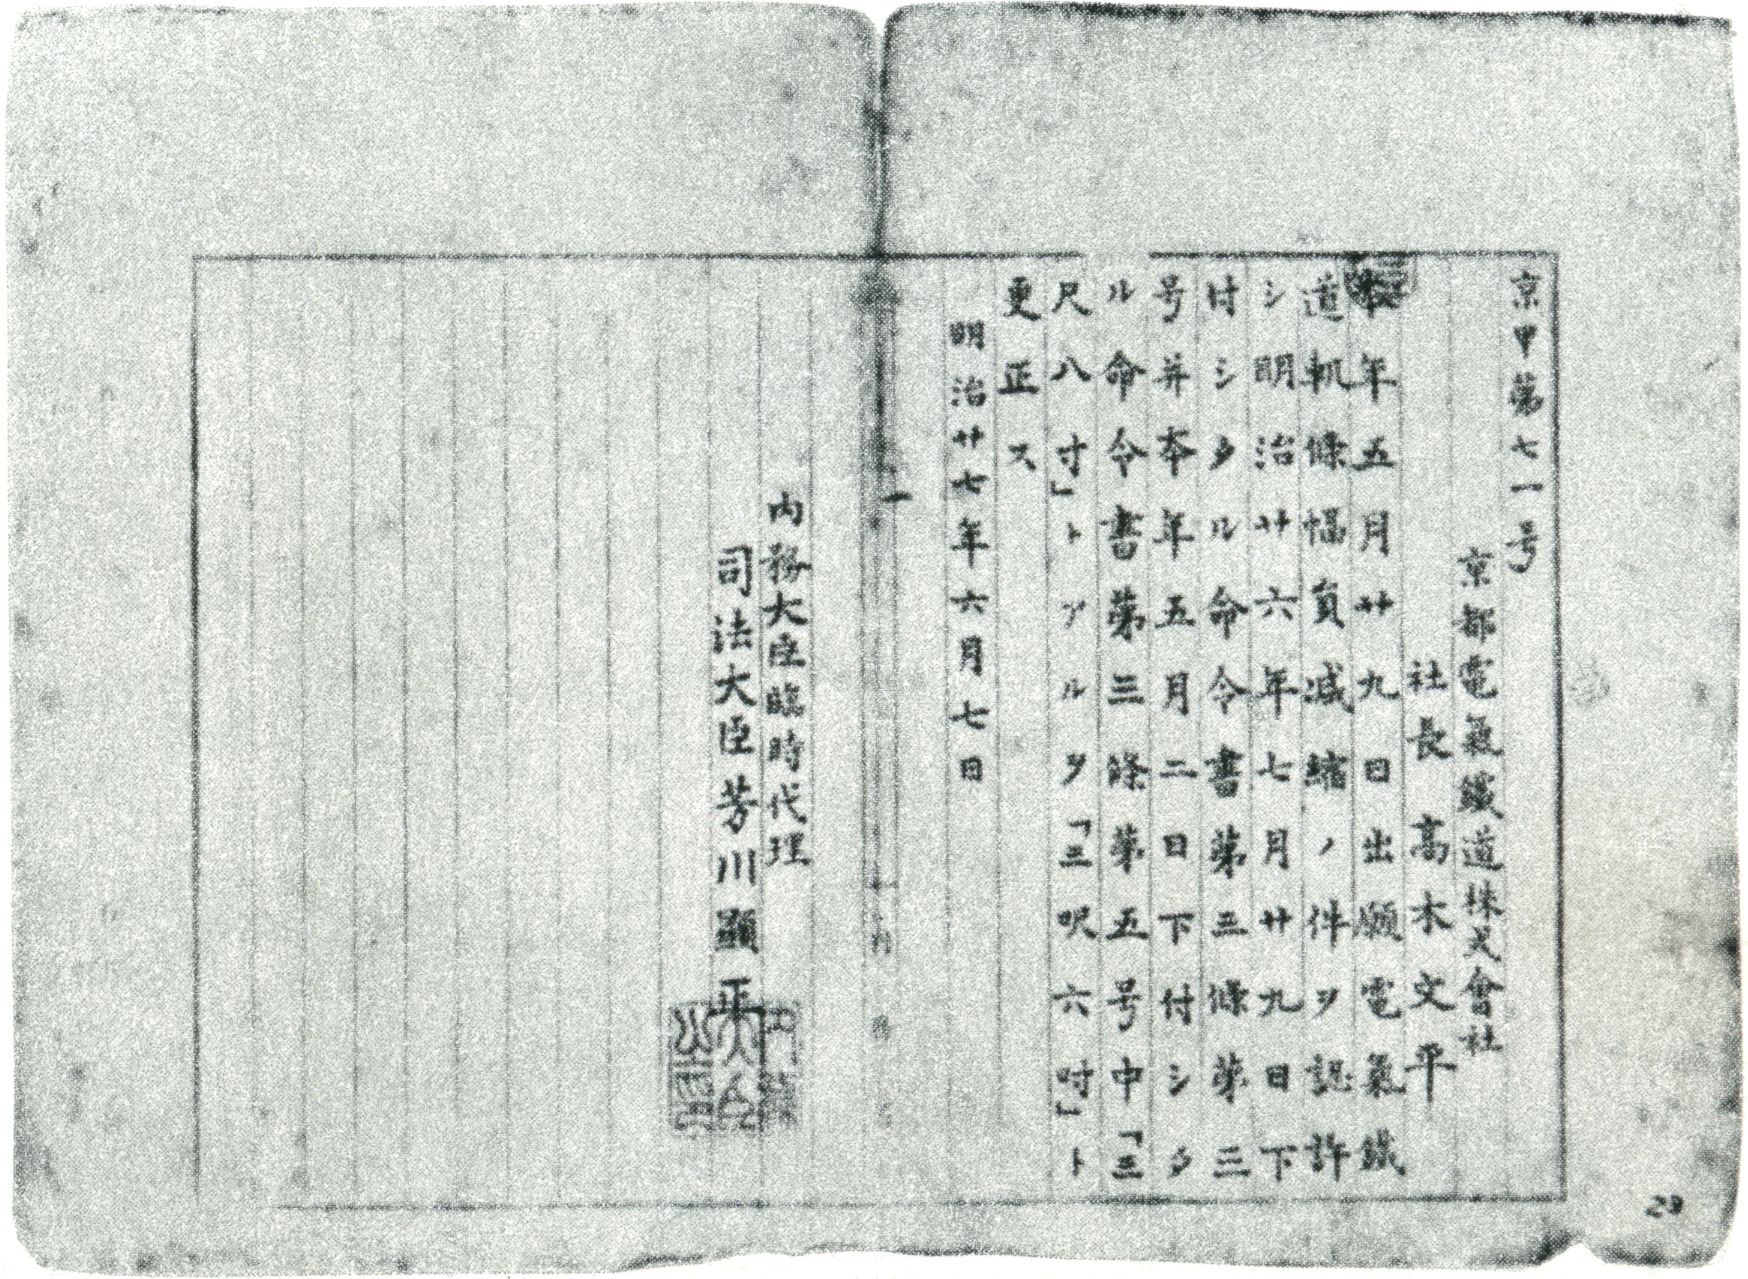 京甲第七一号
京都電氣鐵道株式會社
社長 高木文平
本年五月廿九日出願電氣鐵
道軌條幅員减縮ノ件ヲ認許
シ明治廿六年七月廿九日下
付シタル命令書第三條第三
号并本年五月二日下付シタ
ル命令書第三條第五号中「三
尺八寸」トアルヲ「三呎六吋」ト
更正ス
明治廿七年六月七日
内務大臣臨時代理
司法大臣芳川顯正
内務大臣之印
23